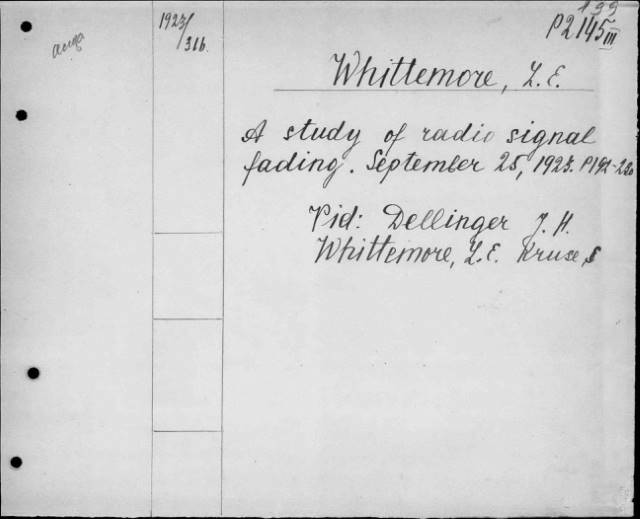 англ
1923/316.
199
P2145 III
Whittemore, L. E.
A study of radio signal
fading. September 25, 1923. P192-230
Vid: Dellinger J. H.
Whittemore, L. E. Kruse, S